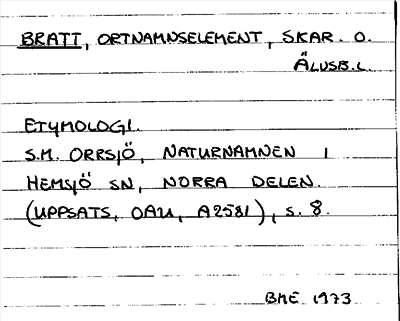 BRATT, ORTNAMNSELEMENT, SKAR. O.
ÄLVSB.L.
ETYMOLOGI.
S.M. ORRSJÖ, NATURNAMNEN I
HEMSJÖ SN, NORRA DELEN.
(UPPSATS, OAU, A2581), S. 8.
BME 1973